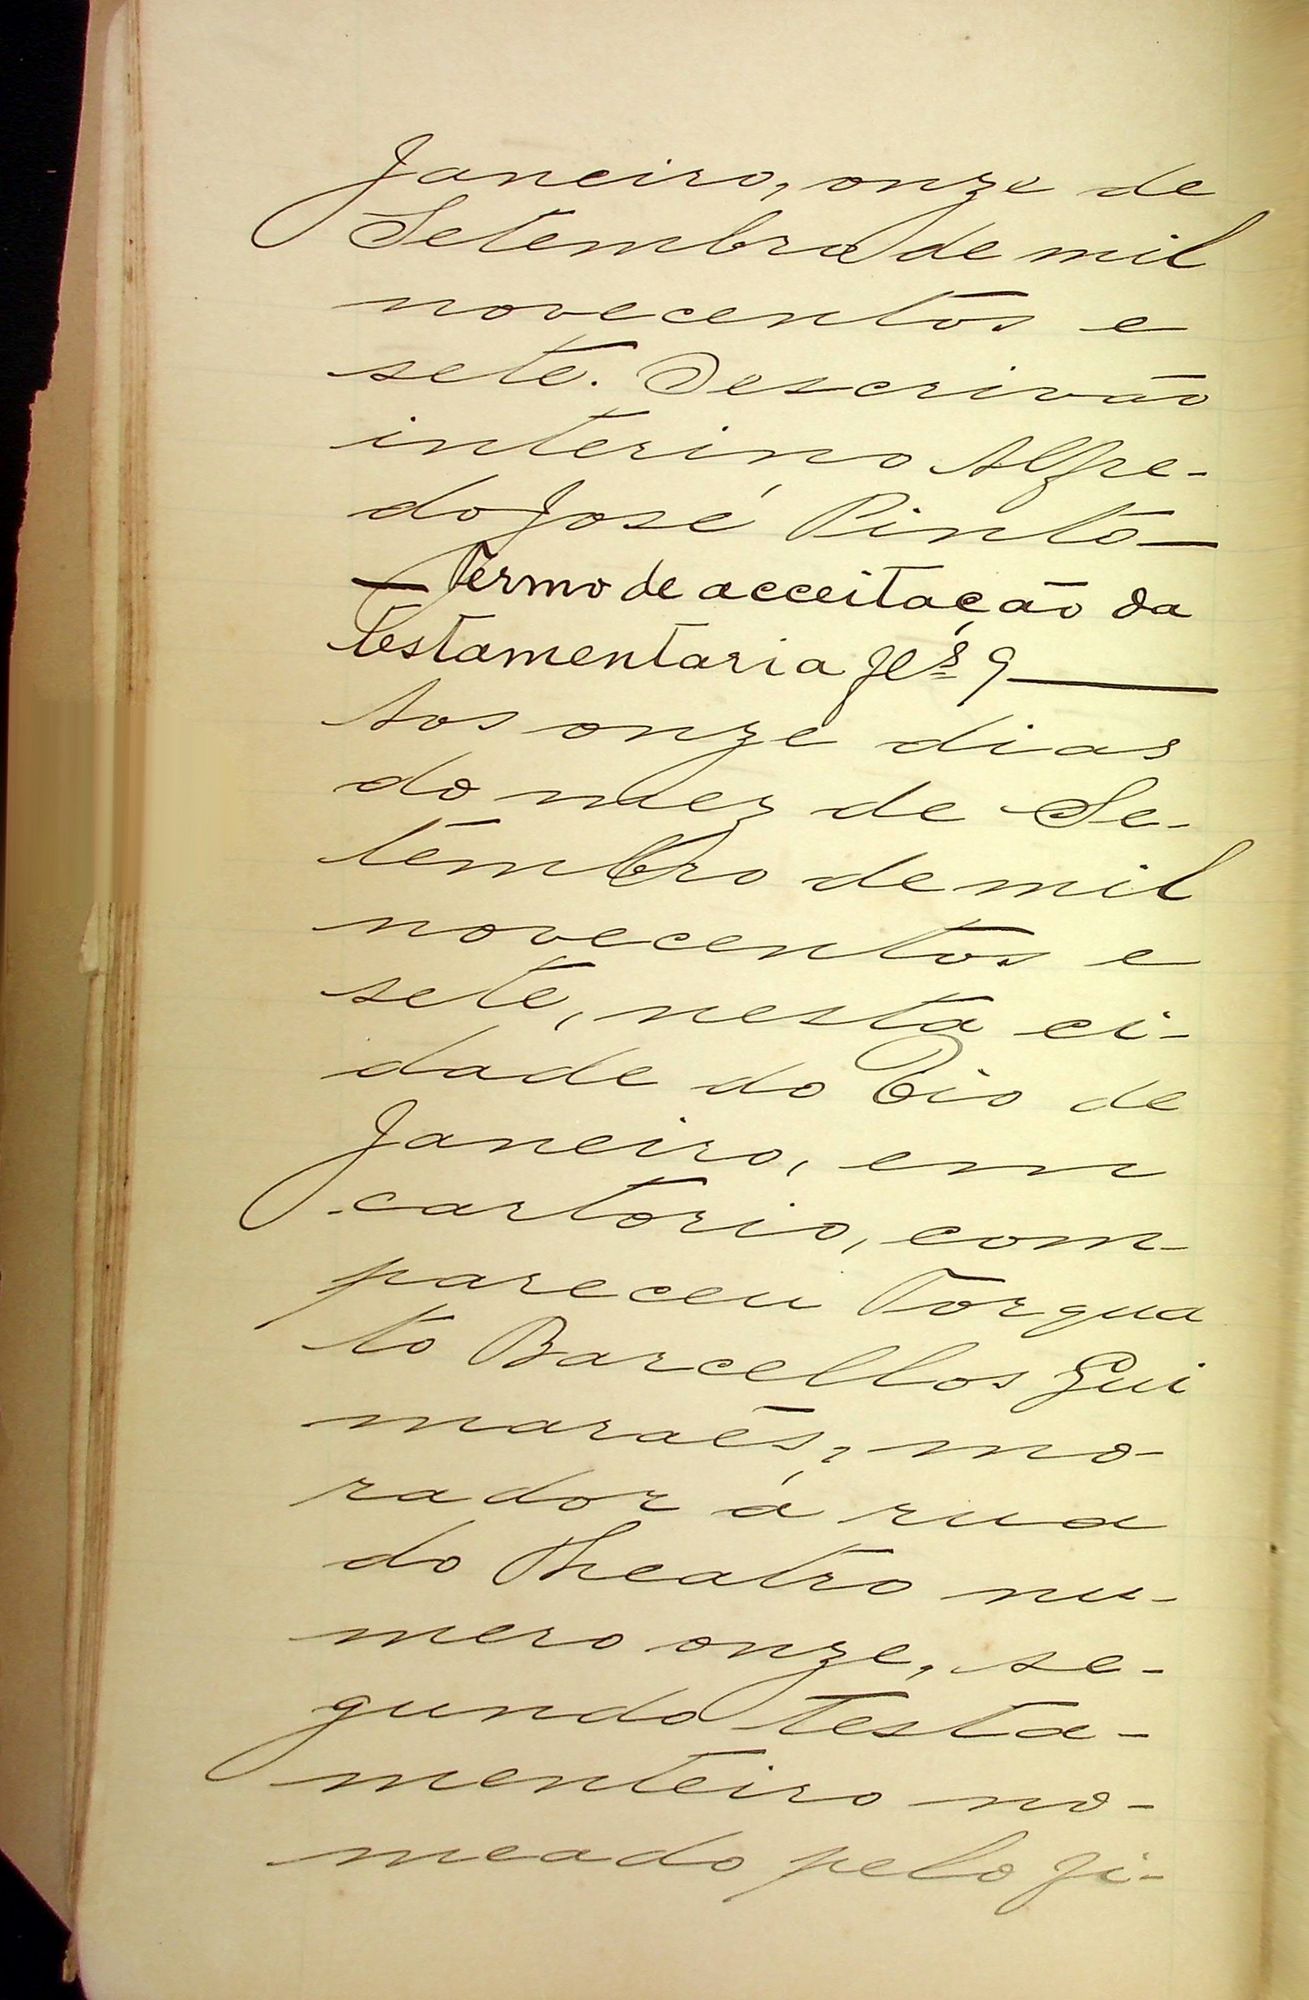 Janeiro, onze de
Setembro de mil
novecentos e
sete. O escrivão
interino Alfre-
do José Pinto—
— Termo de acceitação da
testamentaria fls 9 —
Aos onze dias
do mez de Se-
tembro de mil
novecentos e
sete, nesta ci-
dade do Rio de
Janeiro, em
cartorio, com-
pareceu Torqua
to Barcellos Gui
maraẽs, mo-
rador á rua
do Theatro nu-
mero onze, se-
gundo testa-
menteiro no-
meado pelo fi-